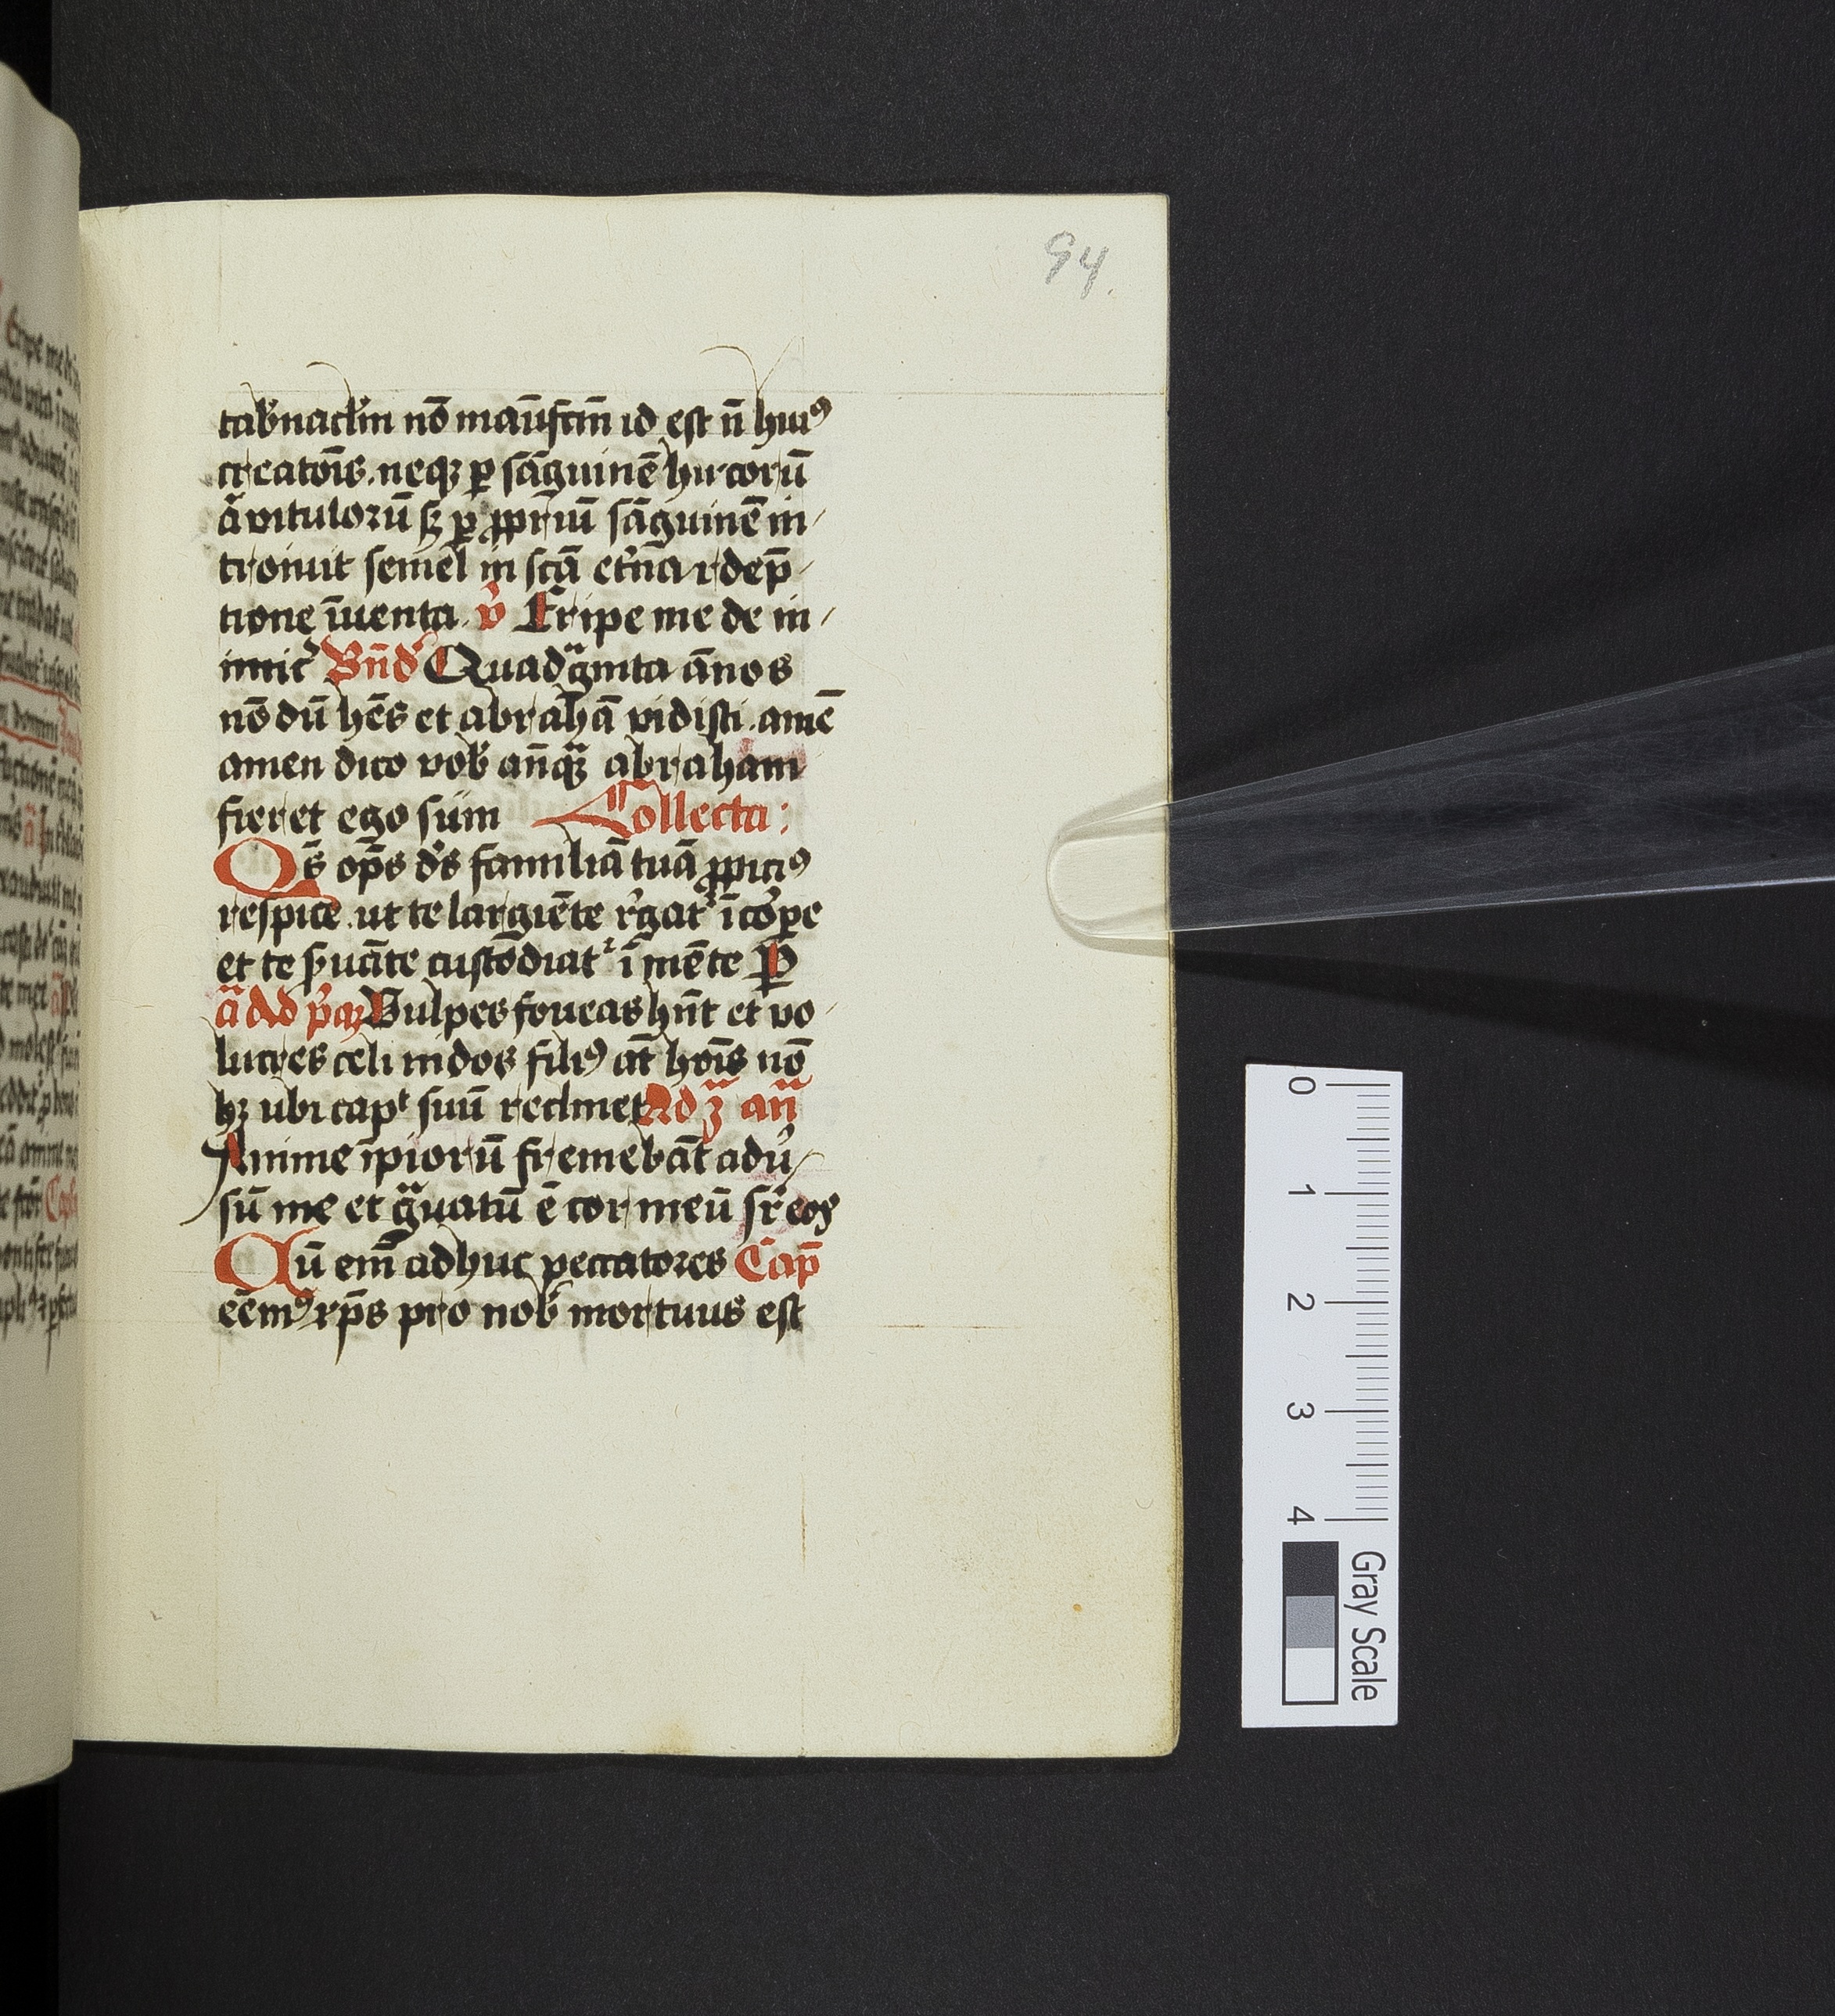 94.
tab̓nacl̄m nō manūfcm̄ id est n̄ hui⁹
creatōis. neqꝫ ꝑ sāguinē hircorū
a̅ vitulorū sꝫ ꝑ ꝓpriū sāguinē in
troiuit semel in scā et̓na rdep̄
tione īuenta. v̓ Eripe me de in
imic̓ Bn̄d̓ Quadᵃginta ānos
nō dū hēs et abrahā vidisti. amē
amen dico vob̓ an̄qᵃꝫ abraham
fieret ego sum Collecta:
Qs̄ op̄s d̓s familiā tuā ꝓpici⁹
respice. ut te largiēte r̓gat᷑ ī cor̓pe
et te s̓uāte custōdiat᷑ ī mēte P̄
a̅ Ad p̓aꝫ Vulpes foueas hn̄t et vo
lucres celi nidos fili⁹ at̄ hoīs nō
hꝫ ubi capᵗ suū reclinet Ad ʒᵃ an̄
Anime īpiorū fremebāt adu̓
sū me et gᵃuatū ē cor meū sr̄ eoꝝ
Qū em̄ adhuc peccatores Cap̄
eēm⁹ xp̄s pro nob̓ mortuus est
0 1 2 3 4 Gray Scale